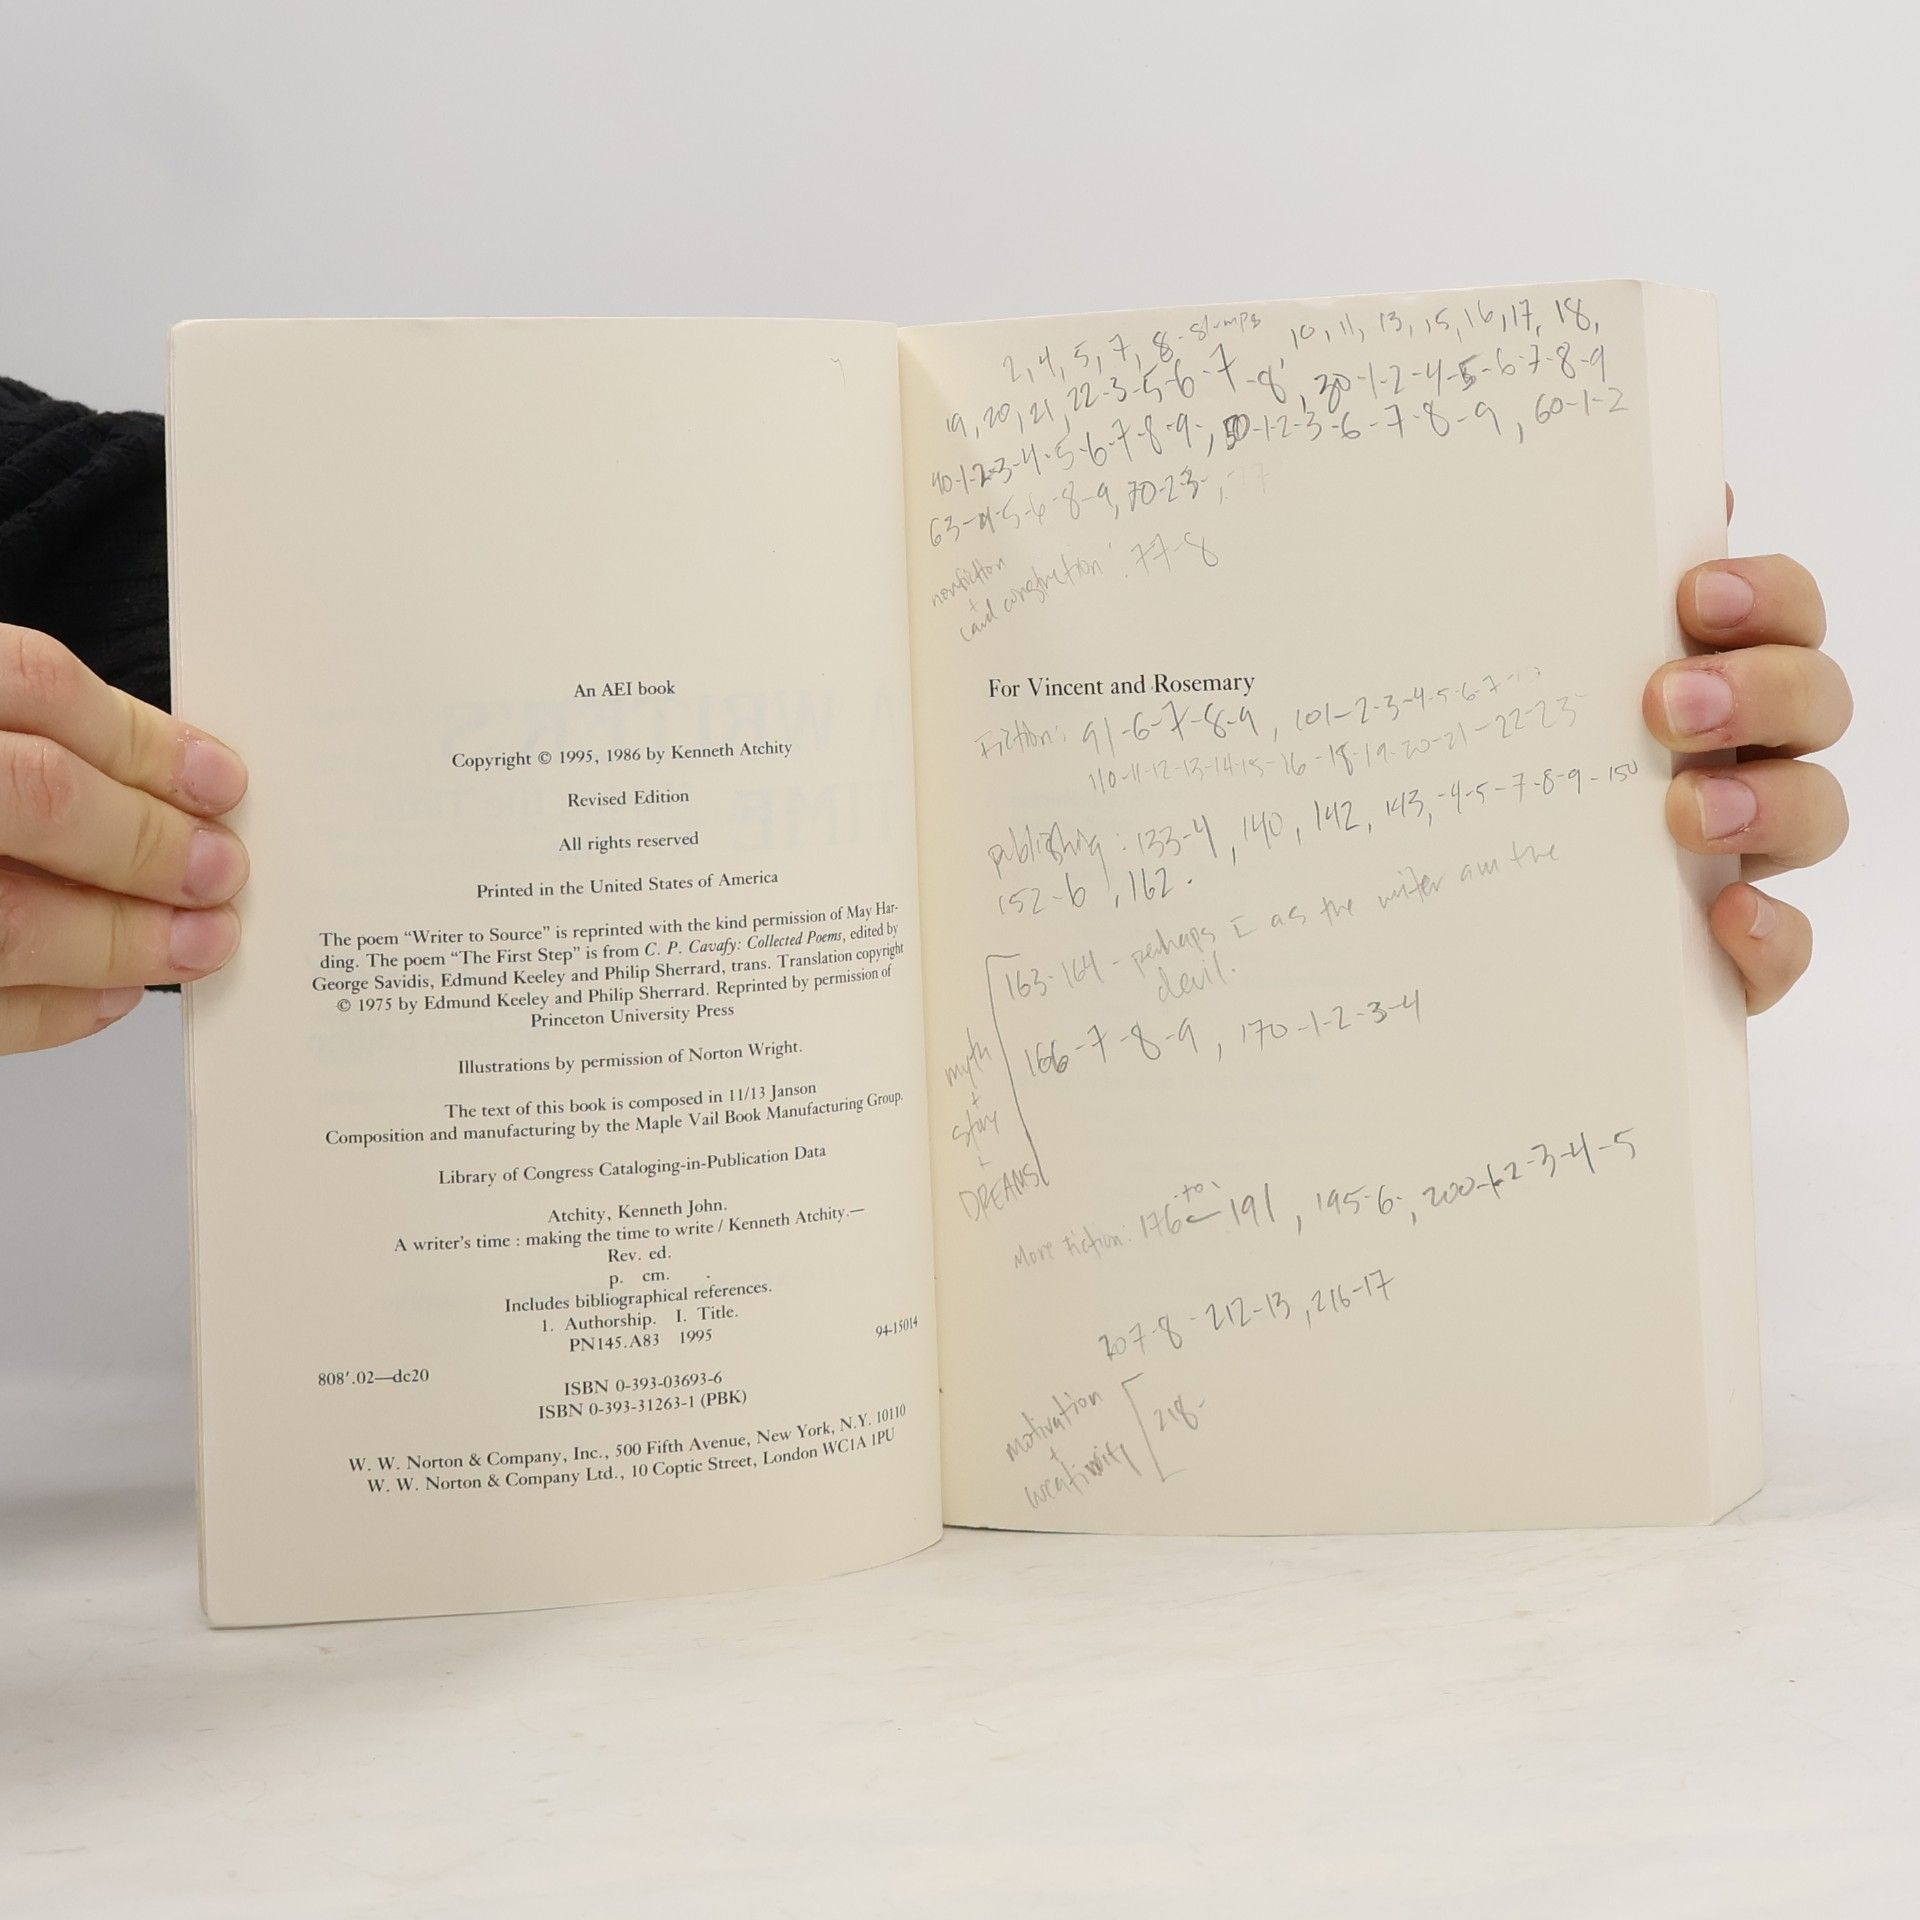 An AEI book
Copyright © 1995, 1986 by Kenneth Atchity
Revised Edition
All rights reserved
Printed in the United States of America
The poem “Writer to Source” is reprinted with the kind permission of May Har-
ding. The poem “The First Step” is from C. P. Cavafy: Collected Poems, edited by
George Savidis, Edmund Keeley and Philip Sherrard, trans. Translation copyright
© 1975 by Edmund Keeley and Philip Sherrard. Reprinted by permission of
Princeton University Press
Illustrations by permission of Norton Wright.
The text of this book is composed in 11/13 Janson
Composition and manufacturing by the Maple Vail Book Manufacturing Group.
Library of Congress Cataloging-in-Publication Data
Atchity, Kenneth John.
A writer's time : making the time to write / Kenneth Atchity.—
Rev. ed.
p. cm.
Includes bibliographical references.
1. Authorship. I. Title.
PN145.A83 1995
94-15014
808'.02—dc20
ISBN 0-393-03693-6
ISBN 0-393-31263-1 (PBK)
W. W. Norton & Company, Inc., 500 Fifth Avenue, New York, N.Y. 10110
W. W. Norton & Company Ltd., 10 Coptic Street, London WC1A 1PU
2, 4, 5, 7, 8-slumps, 10, 11, 13, 15, 16, 17, 18,
19, 20, 21, 22-3-5-6-7-8, 30-1-2-4-5-6-7-8-9
40-1-2-3-4-5-6-7-8-9-, 50-1-2-3-6-7-8-9, 60-1-2
63-4-5-6-8-9, 70-2-3-, -17
nonfiction
+
card construction: 77-8
For Vincent and Rosemary
Fiction: 91-6-7-8-9, 101-2-3-4-5-6-7
110-11-12-13-14-15-16-18-19-20-21-22-23-
publishing: 133-4, 140, 142, 143,-4-5-7-8-9-150
152-6, 162.
163-164 - perhaps I as the writer am the
devil.
166-7-8-9, 170-1-2-3-4
myth
+
story
+
DREAMS
More fiction: 176 to 191, 195-6, 200-1-2-3-4-5
207-8-212-13, 216-17
motivation
+
creativity
218-